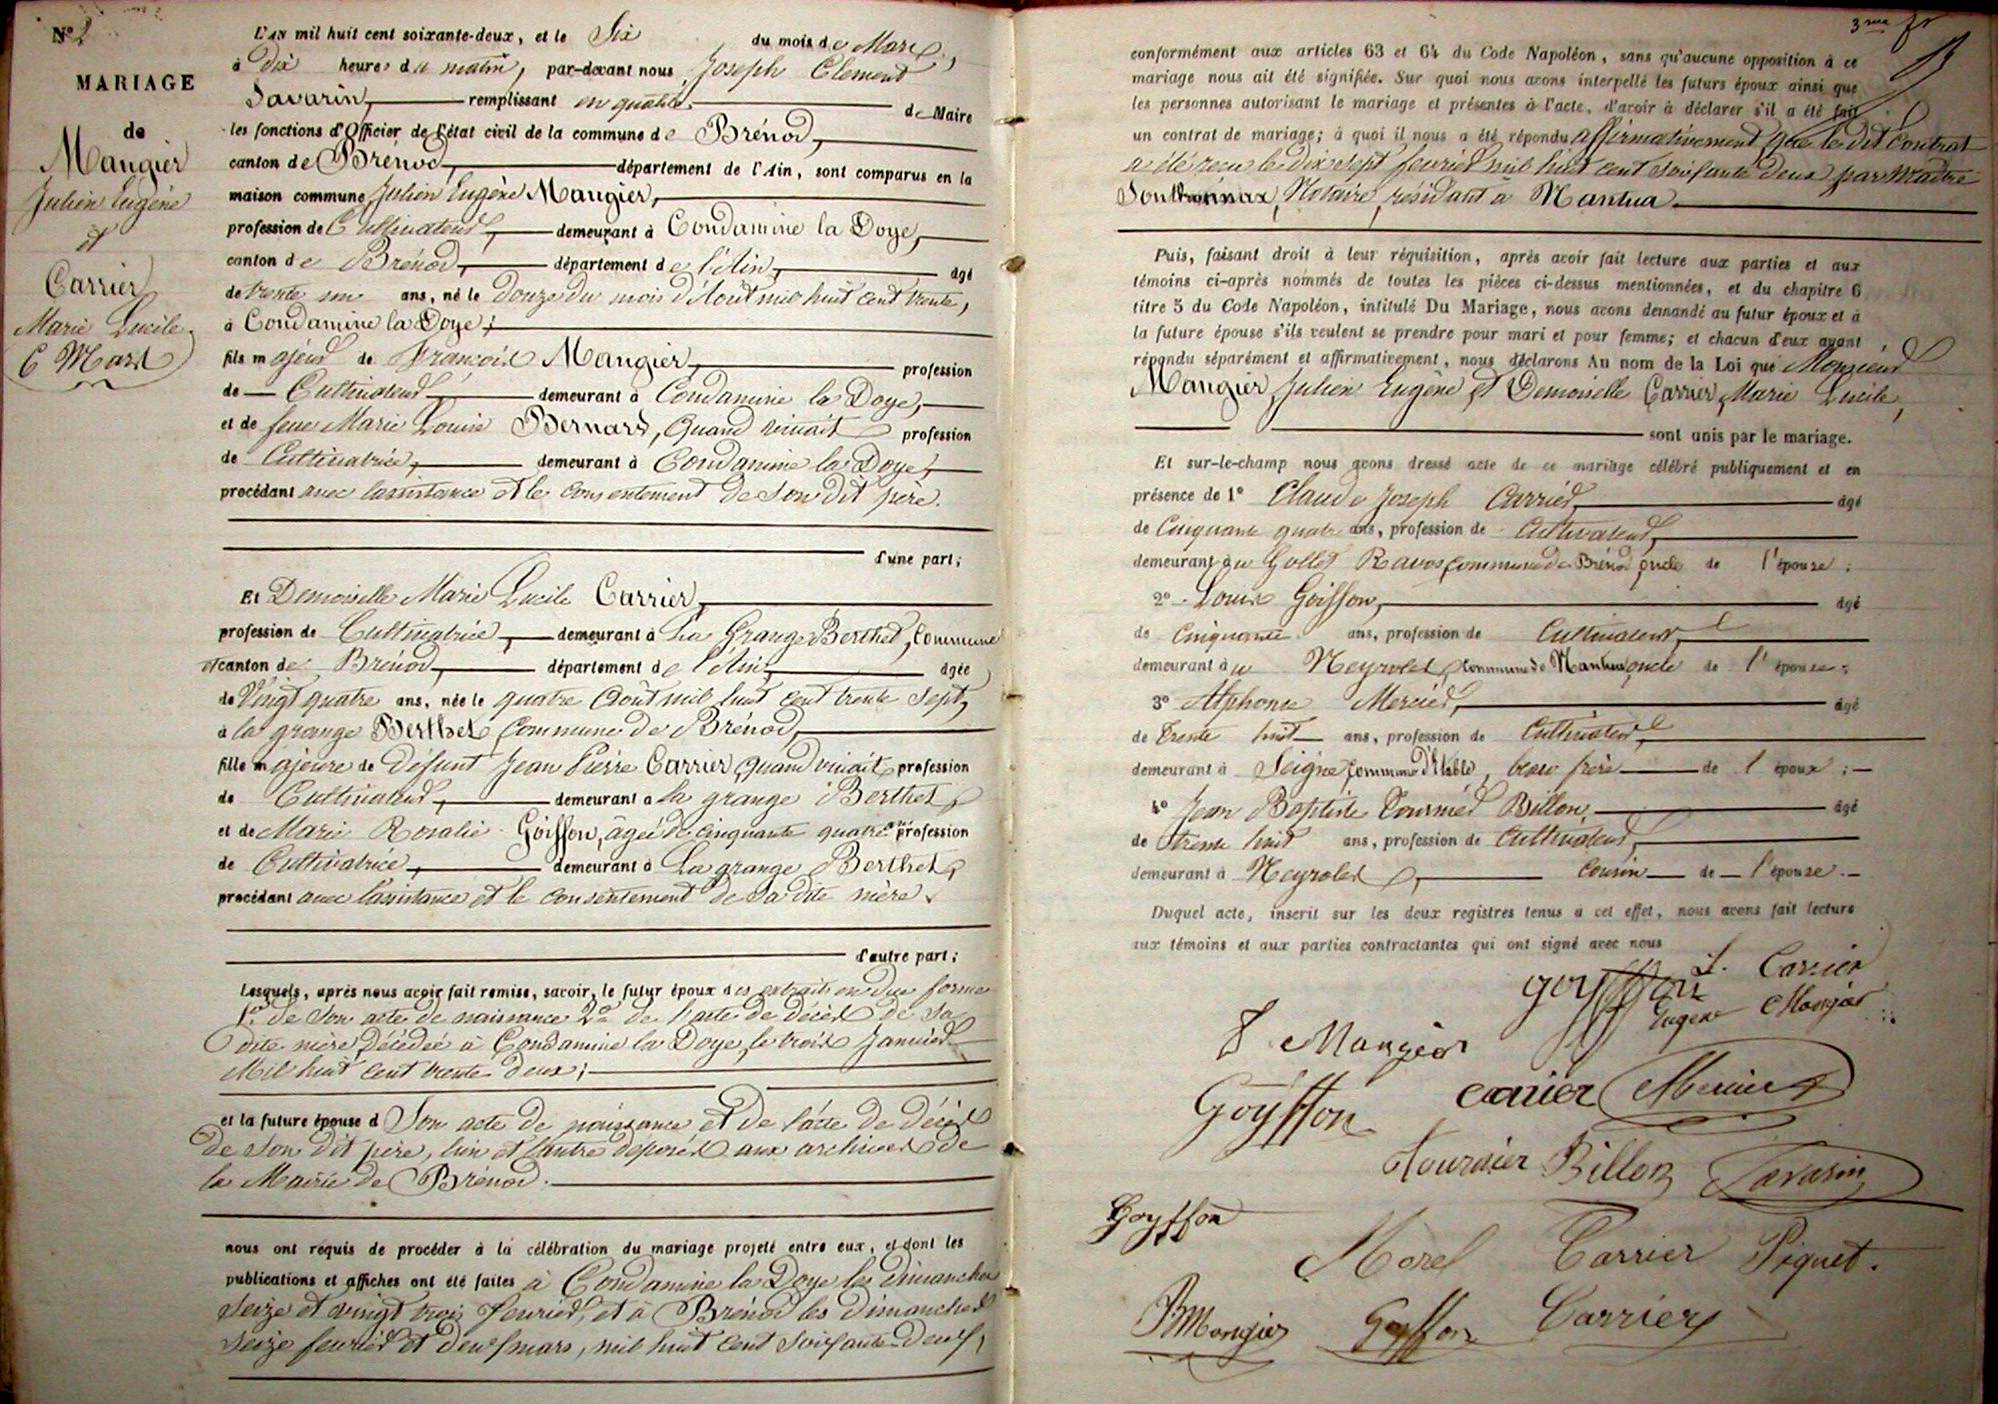 N° 2
MARIAGE
de
Mangier
Julien Eugène
et
Carrier
Marie Lucile
6 Mars
L'AN mil huit cent soixante-deux, et le Six du mois de Mars,
à dix heures du matin, par-devant nous Joseph Clement
Savarin, remplissant en qualité de Maire
les fonctions d'Officier de l'état civil de la commune de Brénod,
canton de Brénod, département de l'Ain, sont comparus en la
maison commune Julien Eugène Mangier,
profession de Cultivateur, demeurant à Condamine la Doye,
canton de Brénod, département de l'Ain, âgé
de trente un ans, né le douze du mois d'Août mil huit cent trente,
à Condamine la Doye;
fils majeur de François Mangier, profession
de Cultivateur, demeurant à Condamine la Doye,
et de feue Marie Louise Bernard, quand vivait profession
de Cultivatrice, demeurant à Condamine la Doye,
procédant avec l'assistance et le consentement de son dit père.
d'une part;
Et Demoiselle Marie Lucile Carrier,
profession de Cultivatrice, demeurant à La Grange Berthet, Commune
et canton de Brénod, département de l'Ain, âgée
de Vingt quatre ans, née le quatre Août mil huit cent trente sept,
à la grange Berthet, Commune de Brénod,
fille majeure de défunt Jean Pierre Carrier, quand vivait profession
de Cultivateur, demeurant à la grange Berthet,
et de Marie Rosalie Goiffon, âgée de cinquante quatre ans profession
de Cultivatrice, demeurant à La grange Berthet,
procédant avec l'assistance et le consentement de sa dite mère.
d'autre part;
Lesquels, après nous avoir fait remise, savoir, le futur époux des extraits en due forme
1° de son acte de naissance 2° de l'acte de décès de sa
dite mère, décédée à Condamine la Doye, le trois Janvier
Mil huit cent trente deux;
et la future épouse d Son acte de naissance et de l'acte de décès
de son dit père, l'un et l'autre déposés aux archives de
la Mairie de Brénod.
nous ont requis de procéder à la célébration du mariage projeté entre eux, et dont les
publications et affiches ont été faites à Condamine la Doye les dimanches
seize et vingt trois février, et à Brénod les dimanches
seize février et deux mars, mil huit cent soixante-deux,
3me
conformément aux articles 63 et 64 du Code Napoléon, sans qu'aucune opposition à ce
mariage nous ait été signifiée. Sur quoi nous avons interpellé les futurs époux ainsi que
les personnes autorisant le mariage et présentes à l'acte, d'avoir à déclarer s'il a été fait
un contrat de mariage; à quoi il nous a été répondu affirmativement, que le dit contrat
a été reçu le dix sept février mil huit cent soixante deux par Maître
Southonnax, Notaire, résidant à Nantua
Puis, faisant droit à leur réquisition, après avoir fait lecture aux parties et aux
témoins ci-après nommés de toutes les pièces ci-dessus mentionnées, et du chapitre 6
titre 5 du Code Napoléon, intitulé Du Mariage, nous avons demandé au futur époux et à
la future épouse s'ils veulent se prendre pour mari et pour femme; et chacun d'eux ayant
répondu séparément et affirmativement, nous déclarons Au nom de la Loi que Monsieur
Mangier, Julien Eugène et Demoiselle Carrier, Marie Lucile,
sont unis par le mariage.
Et sur-le-champ nous avons dressé acte de ce mariage célébré publiquement et en
présence de 1° Claude Joseph Carrier, âgé
de Cinquante quatre ans, profession de Cultivateur,
demeurant au Gollet Ravos, commune de Brénod, oncle de l'épouse;
2° Louis Goiffon, âgé
de Cinquante ans, profession de Cultivateur,
demeurant à Neyrolles, commune de Nantua, oncle de l'épouse;
3° Alphonse Mercier, âgé
de Trente huit ans, profession de Cultivateur,
demeurant à Seigne, commune d'Etable, beau frère de l'époux;
4° Jean Baptiste Tournier Billon, âgé
de trente huit ans, profession de Cultivateur,
demeurant à Neyrolles, cousin de l'épouse.
Duquel acte, inscrit sur les deux registres tenus à cet effet, nous avons fait lecture
aux témoins et aux parties contractantes qui ont signé avec nous
L. Carrier
goyffon
Eugène Mangier
F. Mangier
Goyffon carrier Mercier
Tournier Billon Savarin
Goyffon
Morel Carrier Piquet.
Mangier Goyffon Carrier